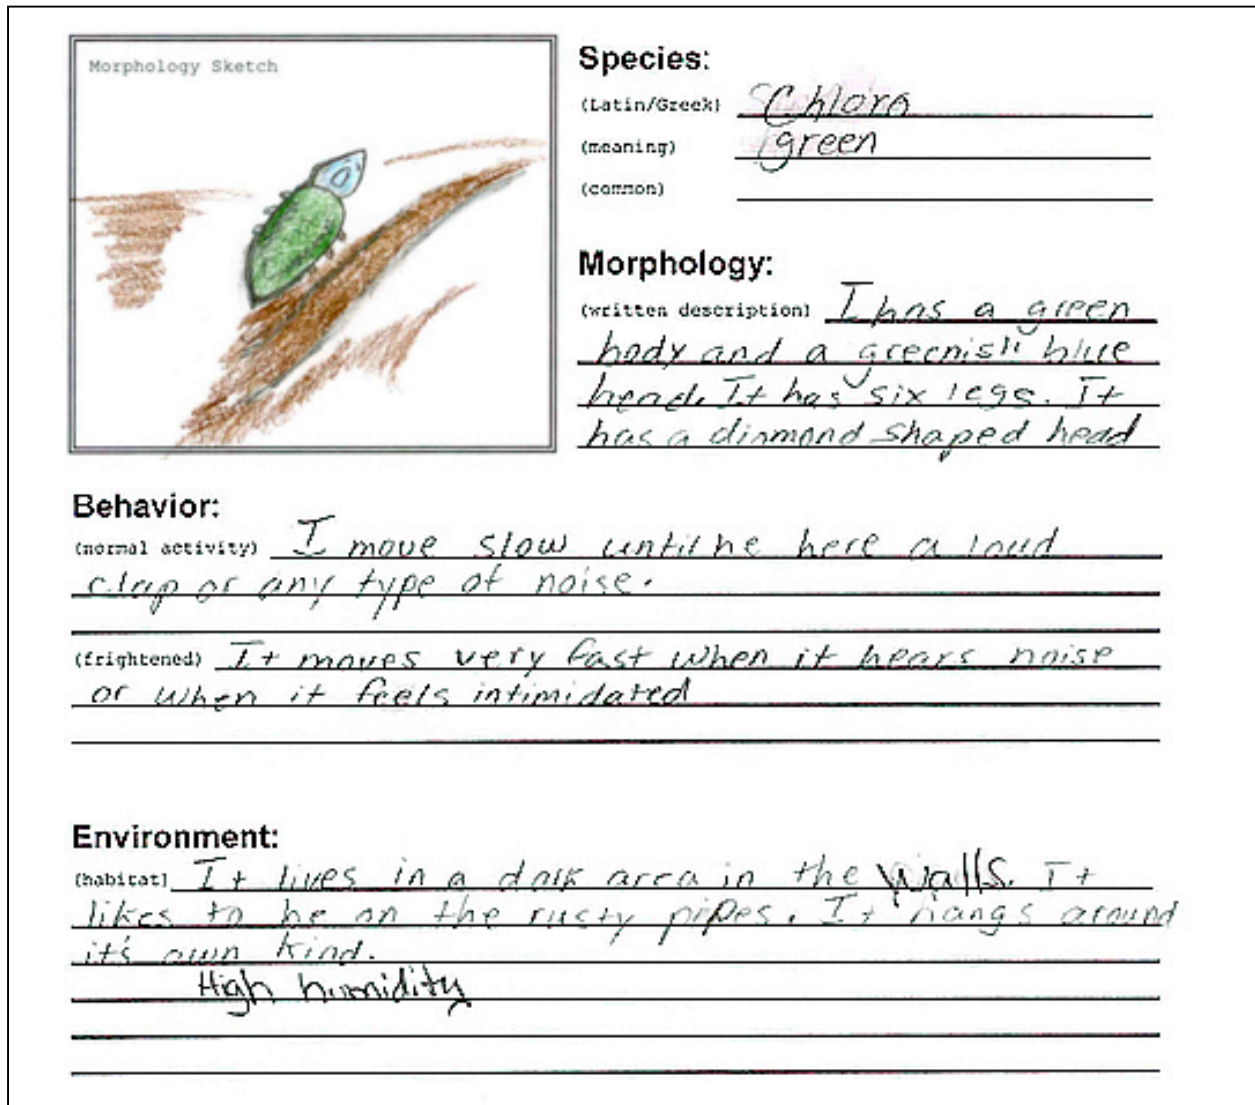 Morphology Sketch
Species:
(Latin/Greek) Chlora
(meaning) green
(common)
Morphology:
(written description) I has a green
body and a greenish blue
head. It has six legs. It
has a diamond shaped head
Behavior:
(normal activity) I move slow until he here a loud
clap or any type of noise.
(frightened) It moves very fast when it hears noise
or when it feels intimidated
Environment:
(habitat) It lives in a dark area in the walls. It
likes to be on the rusty pipes. It hangs around
it's own kind.
High humidity